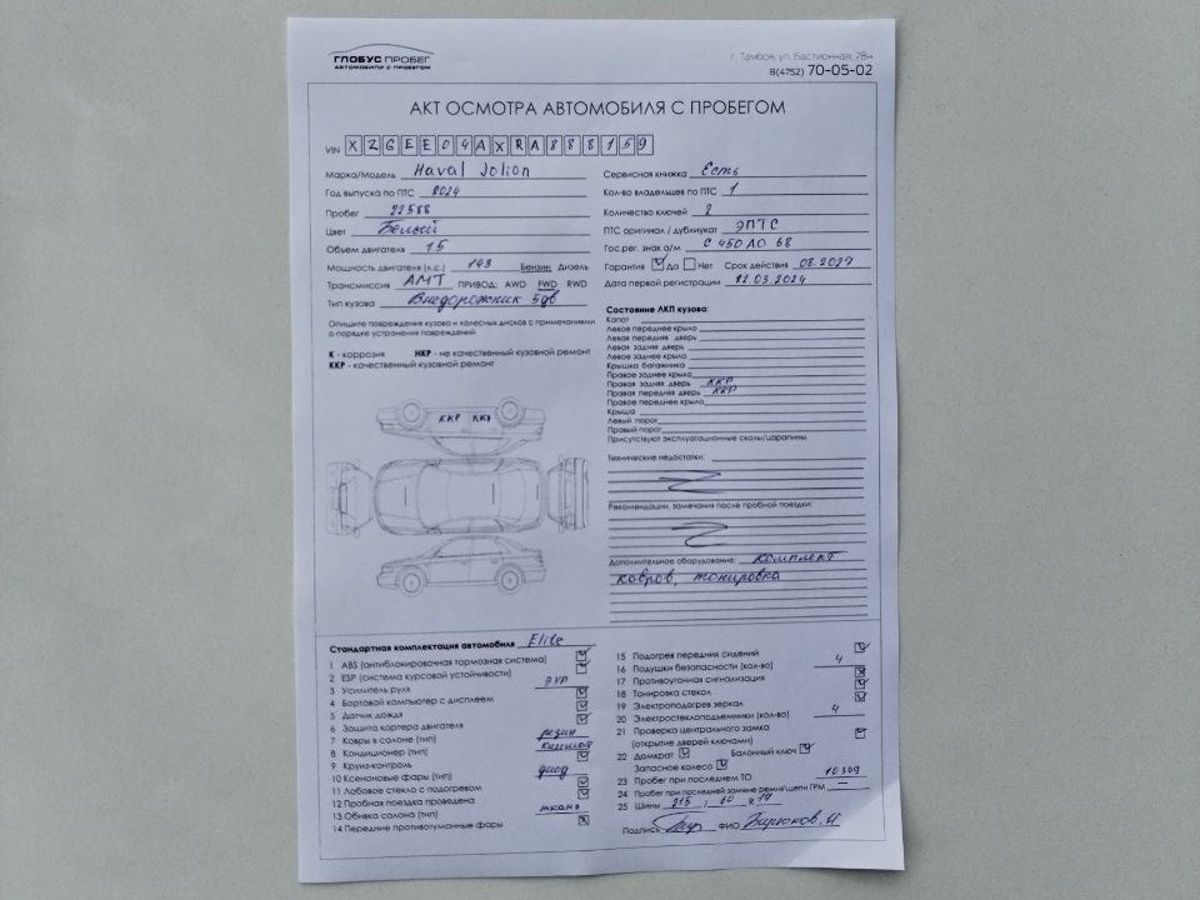 ГЛОБУС ПРОБЕГ
АВТОМОБИЛИ С ПРОБЕГОМ
г. Тамбов, ул. Бастионная, 28н
8(4752) 70-05-02
АКТ ОСМОТРА АВТОМОБИЛЯ С ПРОБЕГОМ
VIN XZGEE04AXRA888159
Марка/Модель Haval Jolion
Год выпуска по ПТС 2024
Пробег 22588
Цвет Белый
Объем двигателя 1.5
Мощность двигателя (л.с.) 143 Бензин Дизель
Трансмиссия АМТ ПРИВОД: AWD FWD RWD
Тип кузова Внедорожник 5дв
Опишите повреждения кузова и колесных дисков с примечаниями
о порядке устранения повреждений
К - коррозия НКР - не качественный кузовной ремонт
ККР - качественный кузовной ремонт
ККР ККР
Сервисная книжка Есть
Кол-во владельцев по ПТС 1
Количество ключей 2
ПТС оригинал / дубликат ЭПТС
Гос.рег. знак а/м С 450 АО 68
Гарантия Да Нет Срок действия 08.2027
Дата первой регистрации 12.03.2024
Состояние ЛКП кузова:
Капот
Левое переднее крыло
Левая передняя дверь
Левая задняя дверь
Левое заднее крыло
Крышка багажника
Правое заднее крыло
Правая задняя дверь ККР
Правая передняя дверь ККР
Правое переднее крыло
Крыша
Левый порог
Правый порог
Присутствуют эксплуатационные сколы/царапины
Технические недостатки:
Рекомендации, замечания после пробной поездки:
Дополнительное оборудование: комплект
ковров, тонировка
Стандартная комплектация автомобиля Elite
1 ABS (антиблокировочная тормозная система)
2 ESP (система курсовой устойчивости)
3 Усилитель руля ЭУР
4 Бортовой компьютер с дисплеем
5 Датчик дождя
6 Защита картера двигателя
7 Ковры в салоне (тип) резин
8 Кондиционер (тип)
9 Круиз-контроль
10 Ксеноновые фары (тип) диод
11 Лобовое стекло с подогревом
12 Пробная поездка проведена
13 Обивка салона (тип) ткань
14 Передние противотуманные фары
15 Подогрев передних сидений
16 Подушки безопасности (кол-во) 4
17 Противоугонная сигнализация
18 Тонировка стекол
19 Электроподогрев зеркал
20 Электростеклоподъемники (кол-во) 4
21 Проверка центрального замка
(открытие дверей ключами)
22 Домкрат Балонный ключ
Запасное колесо
23 Пробег при последнем ТО 10309
24 Пробег при последней замене ремня\цепи ГРМ —
25 Шины 215 / 60 R 17
Подпись ФИО Бирюков. И